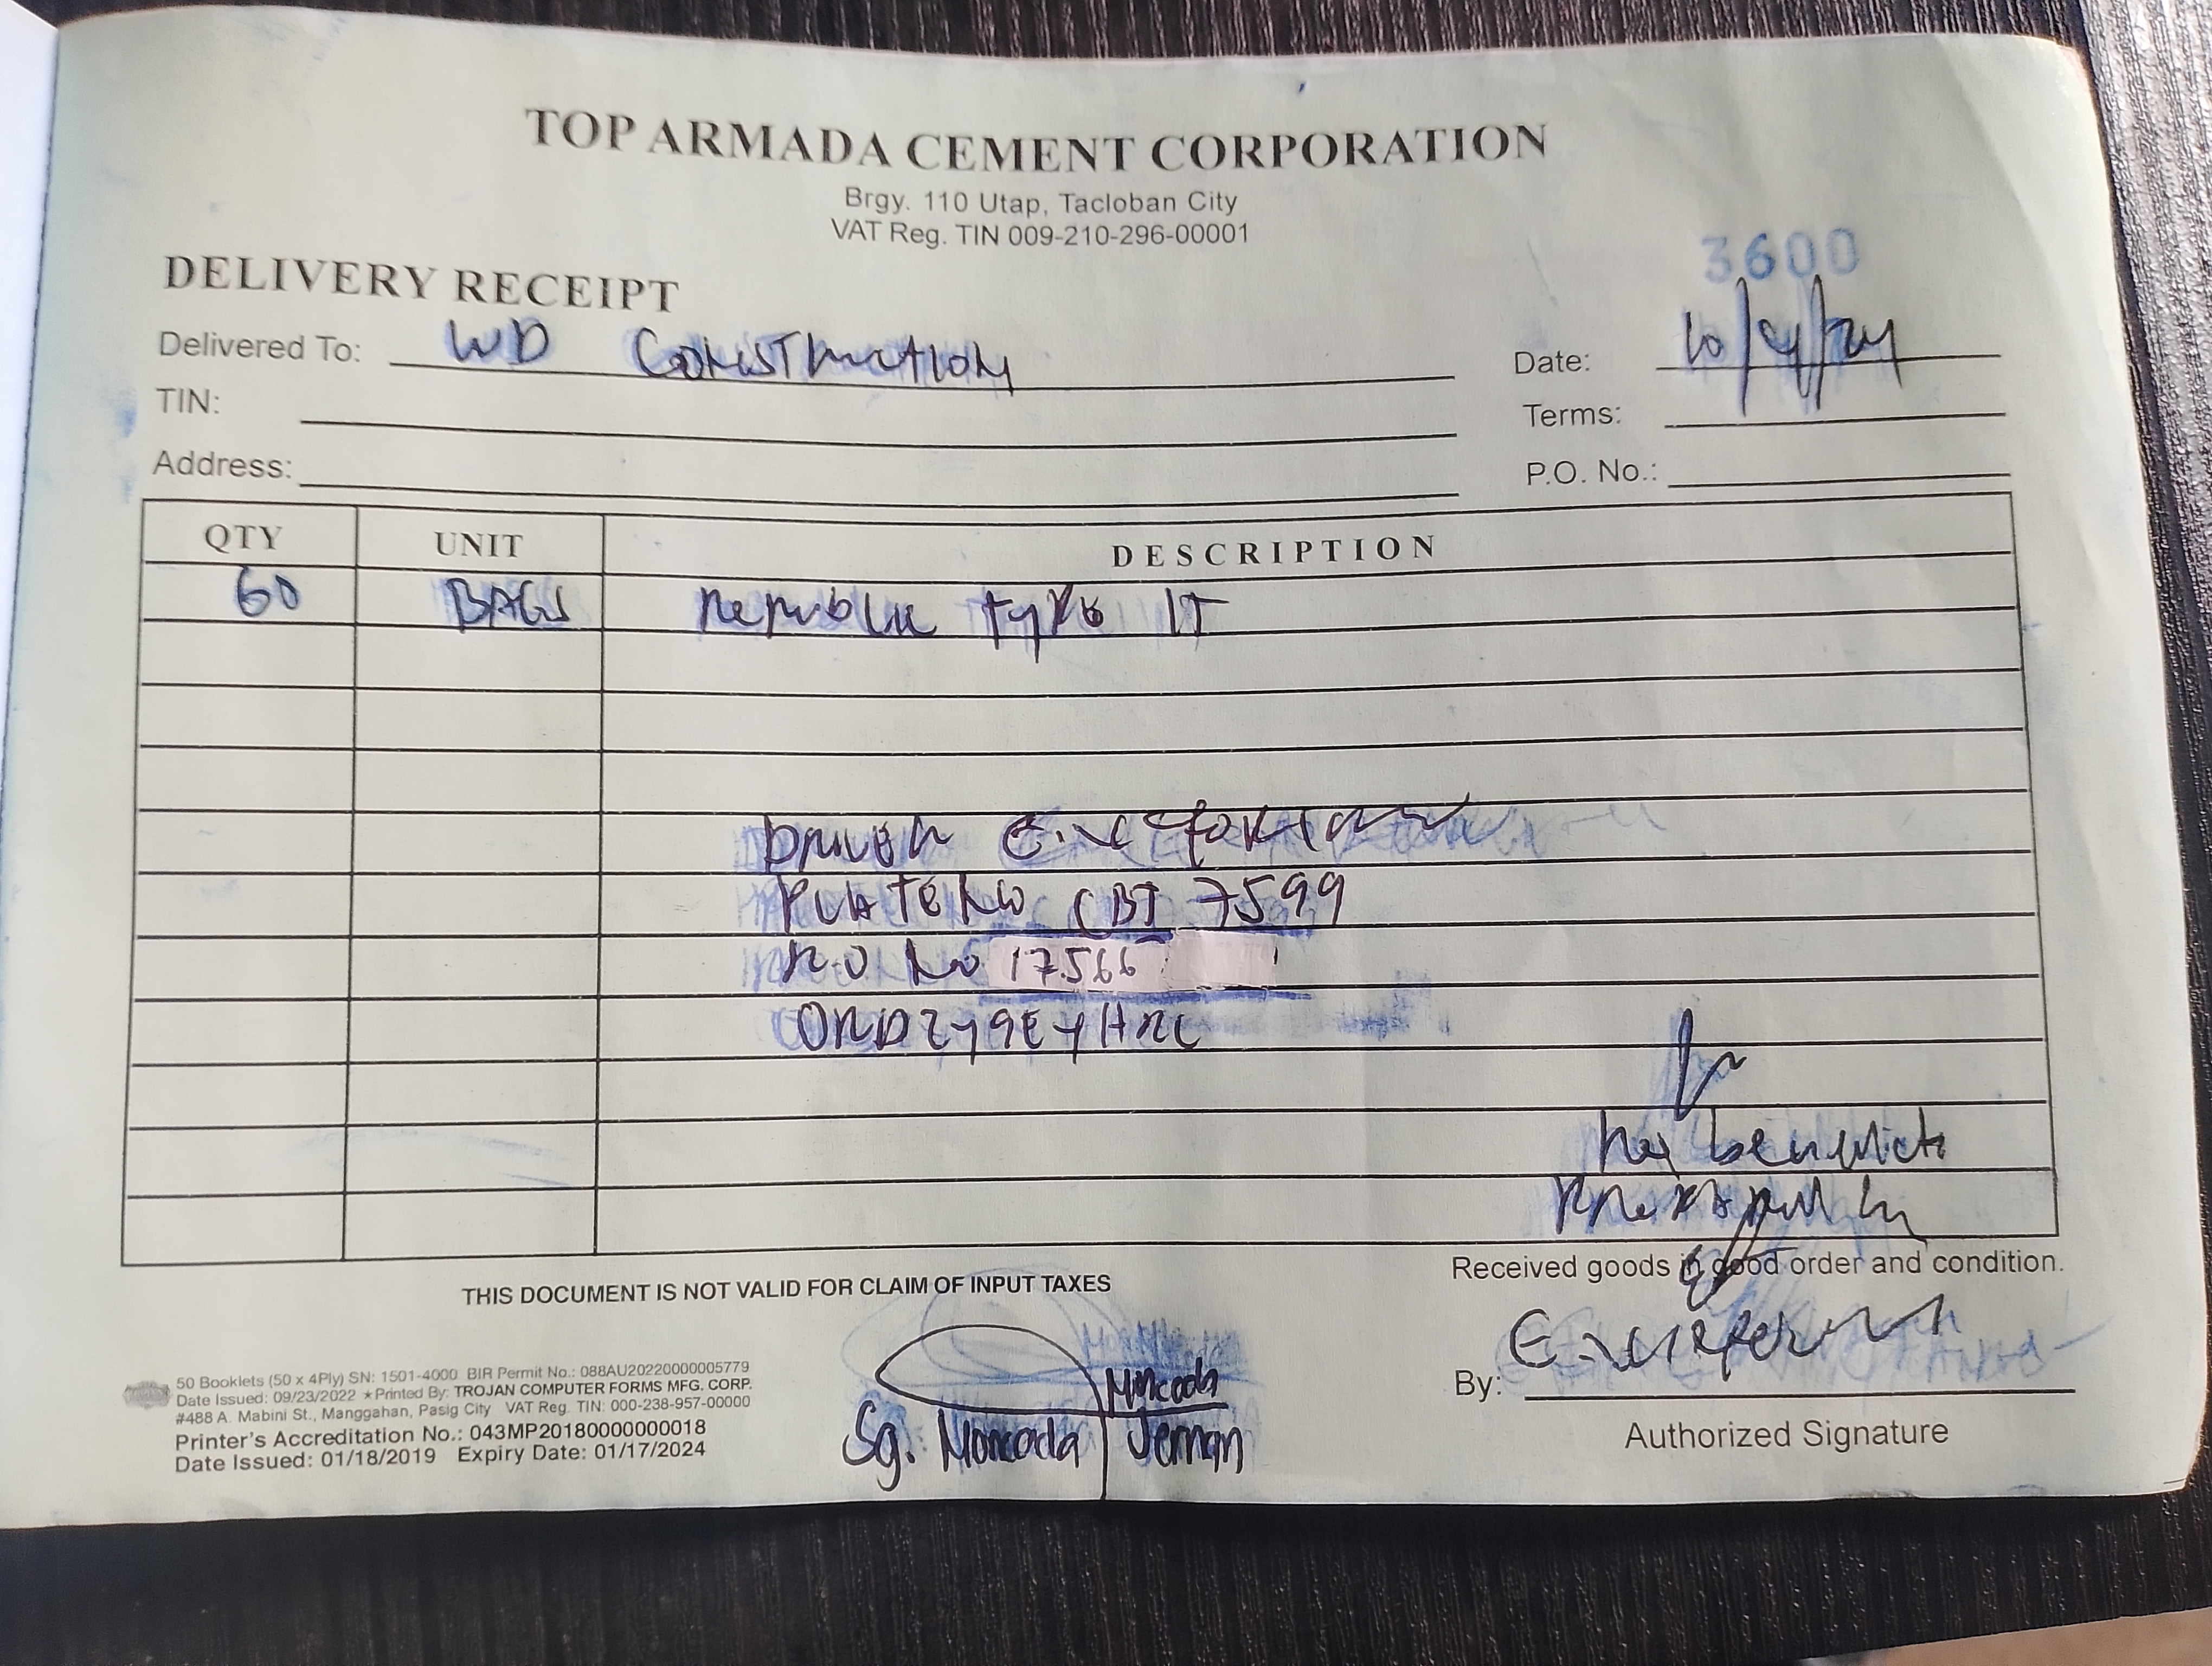 TOP ARMADA CEMENT CORPORATION
Brgy. 110 Utap, Tacloban City
VAT Reg. TIN 009-210-296-00001
3600
DELIVERY RECEIPT
Delivered To: WD CONSTRUCTION
Date: 10/4/24
TIN:
Terms:
Address:
P.O. No.:
QTY UNIT DESCRIPTION
60 BAGS Republic type 1T
DRIVER
PLATE NO CBI 7599
R.O NO 17566
ORDZY9EY HRC
Received goods in good order and condition.
THIS DOCUMENT IS NOT VALID FOR CLAIM OF INPUT TAXES
Moncada
Sg. Moncada Jernan
By:
Authorized Signature
50 Booklets (50 x 4Ply) SN: 1501-4000 BIR Permit No.: 088AU20220000005779
Date Issued: 09/23/2022 ★Printed By: TROJAN COMPUTER FORMS MFG. CORP.
#488 A. Mabini St., Manggahan, Pasig City VAT Reg. TIN: 000-238-957-00000
Printer's Accreditation No.: 043MP20180000000018
Date Issued: 01/18/2019 Expiry Date: 01/17/2024